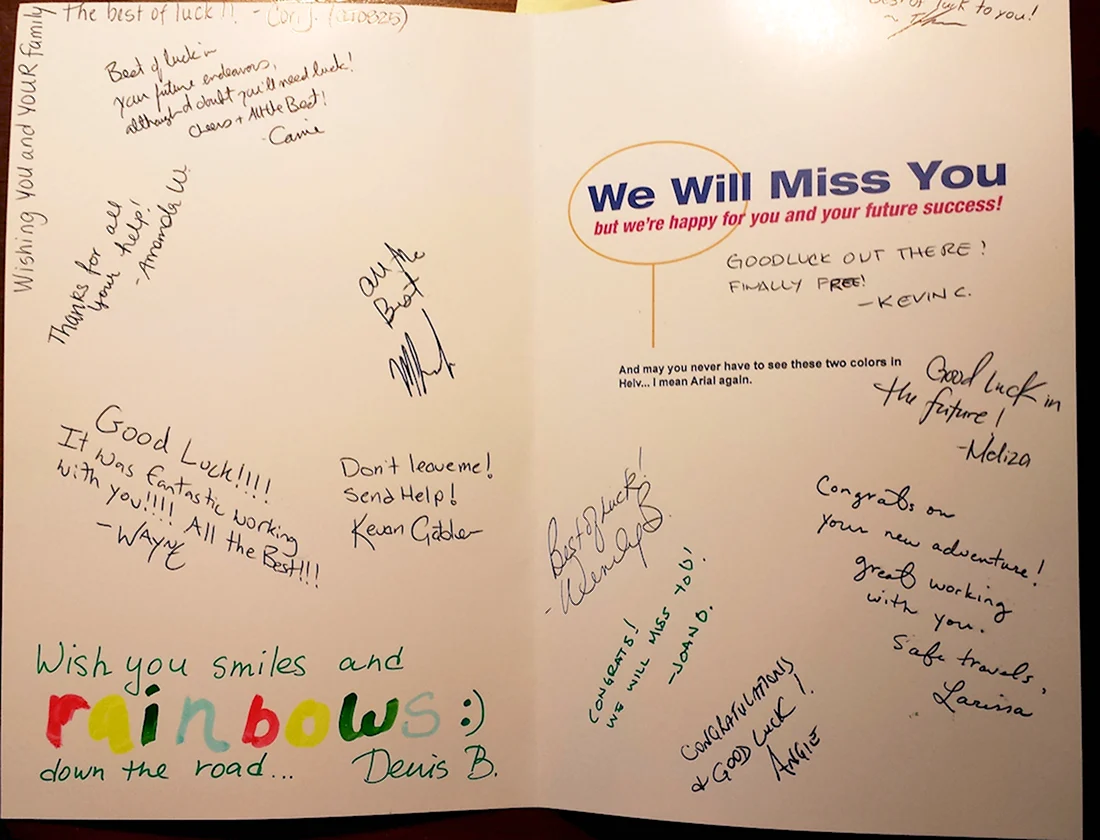 Wishing you and youR family
The best of luck!! - Cori J. (040825)
Best of luck in
your future endeavors,
although I doubt you'll need luck!
Cheers + All the Best!
- Carrie
Thanks for all
your help!
- Amanda W.
All the
Best
Good Luck!!!!
It was fantastic working
with you!!!! All the Best!!!
- WAYNE
Don't leave me!
Send Help!
Kevan Gabler
Wish you smiles and
rainbows :)
down the road... Denis B.
Best of luck to you!
We Will Miss You
but we're happy for you and your future success!
GOODLUCK OUT THERE!
FINALLY FREE!
- KEVIN C.
And may you never have to see these two colors in
Helv... I mean Arial again.
Good Luck in
the future!
- Meliza
Best of Luck!
- Wendy B.
Congrats on
your new adventure!
great working
with you.
Safe travels,
Larissa
CONGRATS!
WE WILL MISS YOU!
- JOAN D.
CONGRATULATIONS
& GOOD LUCK!
ANGIE